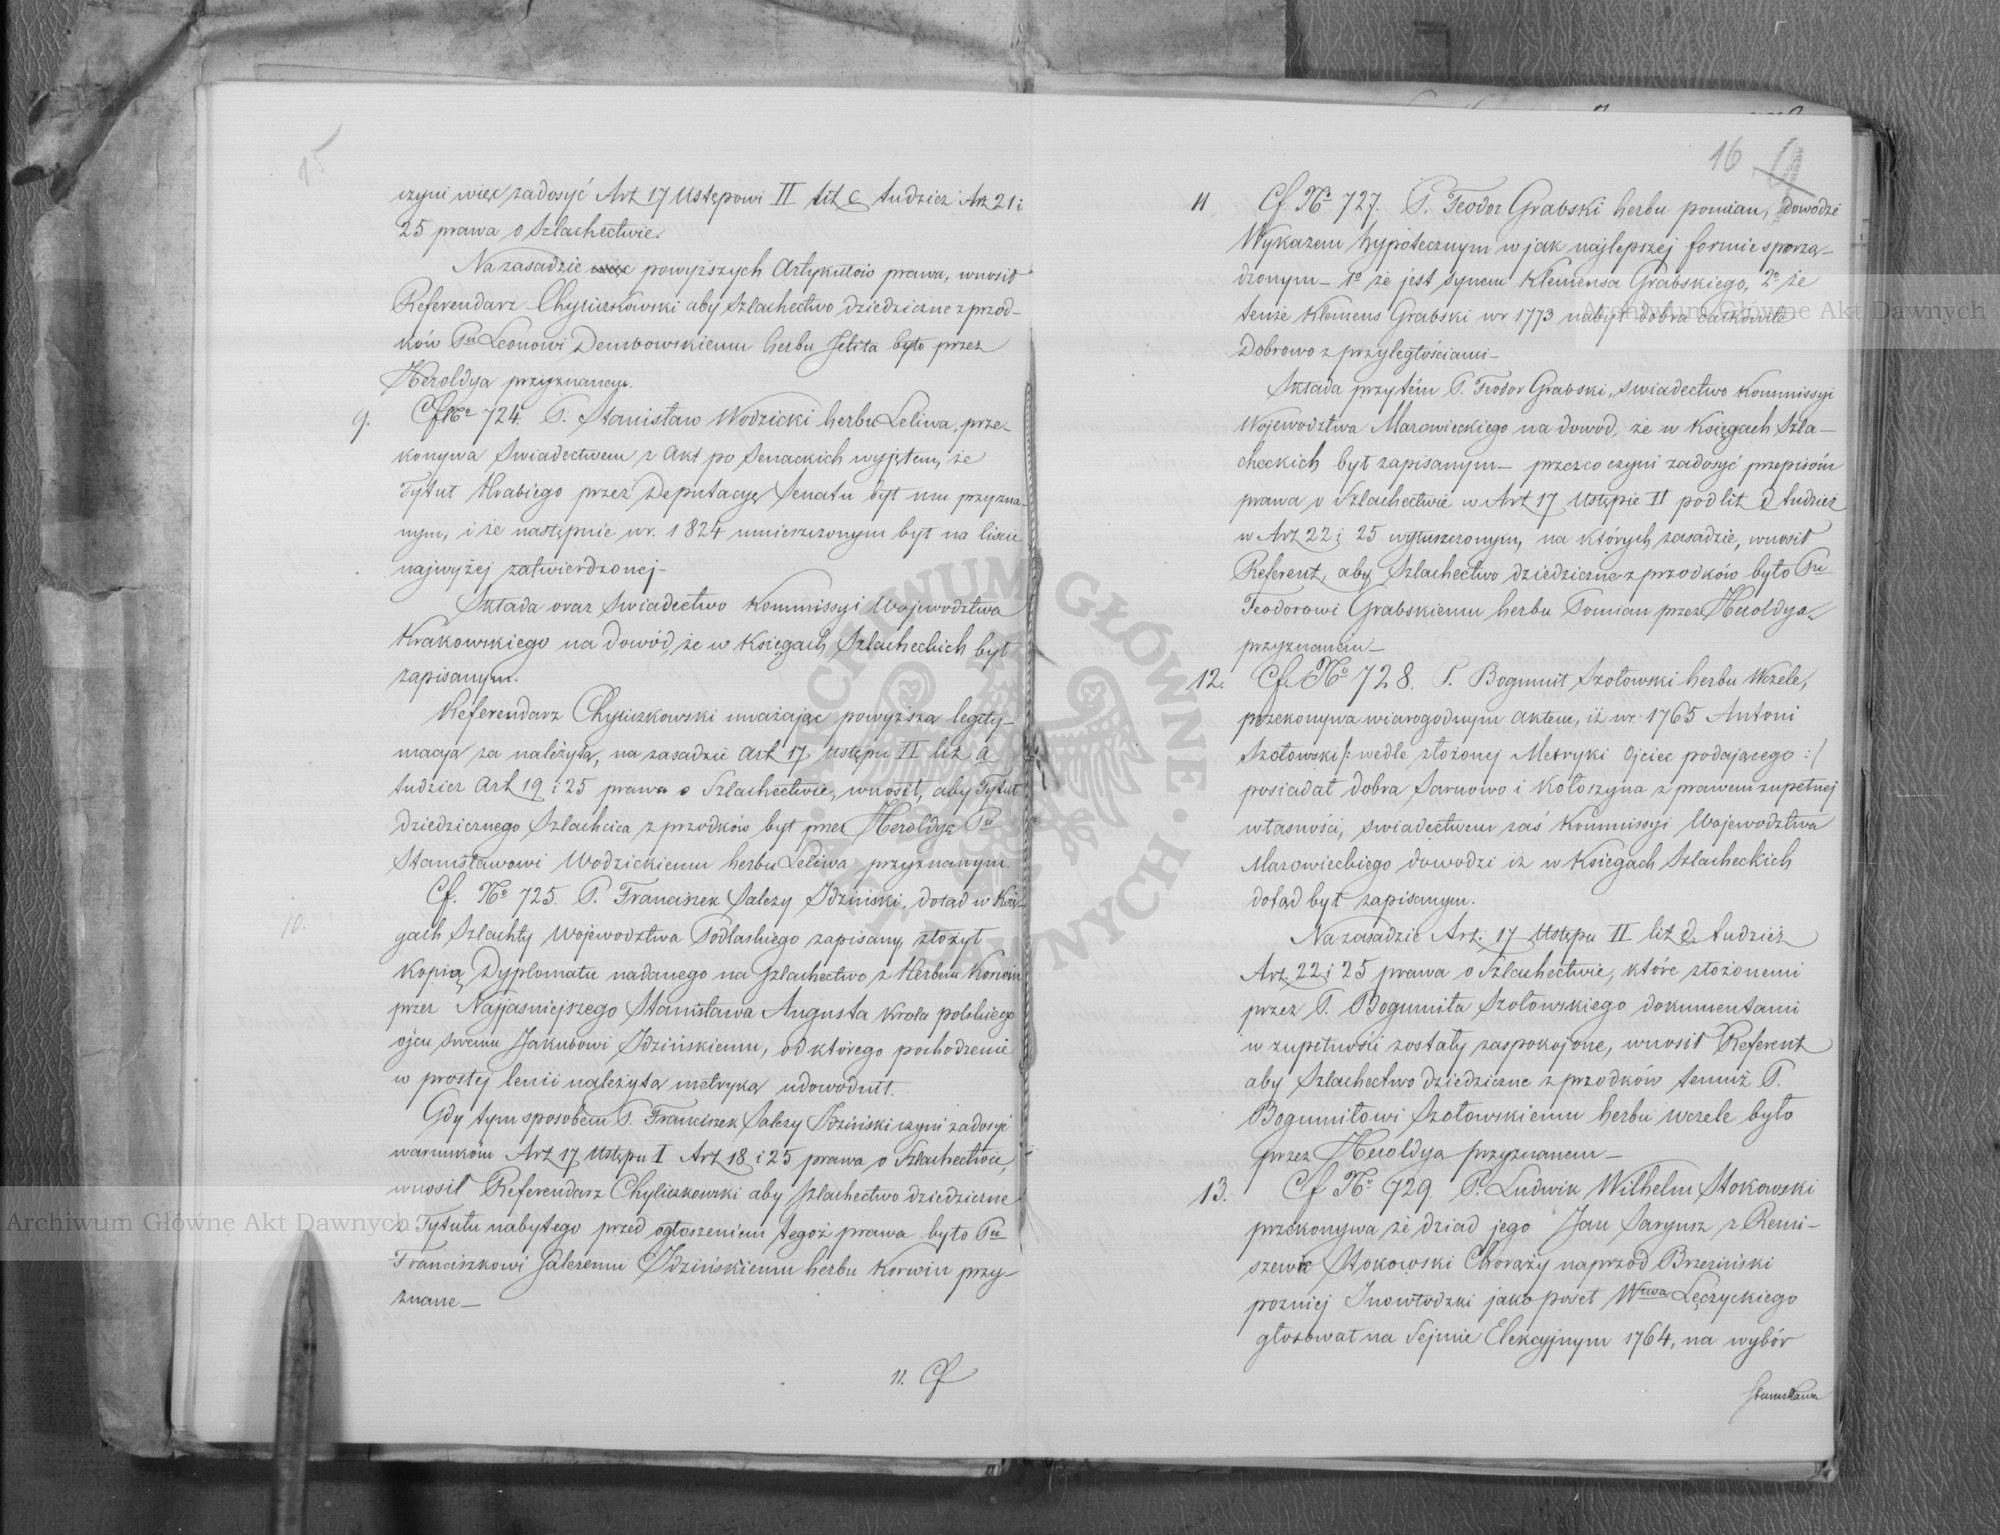 15
czyni więc zadosyć Art 17 Ustępowi II lit c tudzież Art 21 i
25 prawa o Szlachectwie.
Na zasadzie więc powyższych Artykułów prawa, wnosił
Referendarz Chyliczkowski aby Szlachectwo dziedziczne z przod-
ków Pu Leonowi Dembowskiemu herbu Jelita było przez
Heroldya przyznanem.
9. Cf No 724. P. Stanisław Wodzicki herbu Leliwa, prze-
konywa Swiadectwem z Akt po Senackich wyjętem, że
Tytuł Hrabiego przez Deputacyę Senatu był mu przyzna-
nym, i że następnie w r. 1824 umieszczonym był na liscie
najwyżej zatwierdzonej-
Składa oraz Swiadectwo Kommissyi Województwa
Krakowskiego na dowód, że w Księgach Szlacheckich był
zapisanym.
Referendarz Chyliczkowski uważając powyższa legity-
macya za należytą, na zasadzie Art 17 Ustępu II lit a
tudzież Art 19 i 25 prawa o Szlachectwie, wnosił, aby Tytuł
dziedzicznego Szlachcica z przodków był przez Heroldyą Pu
Stanisławowi Wodzickiemu herbu Leliwa przyznanym.
10. Cf. No 725. P. Franciszek Salezy Idziński, dotąd w Księ-
gach Szlachty Województwa Podlaskiego zapisany, złożył
Kopią Dyplomatu nadanego na szlachectwo z Herbem Korwin
przez Najjasniejszego Stanisława Augusta Króla polskiego
ojcu swemu Jakubowi Idzińskiemu, od którego pochodzenie
w prostej lenii należytą metryką udowodnił.
Gdy tym sposobem P. Franciszek Salezy Idziński czyni zadosyć
warunków Art 17 Ustępu I Art 18 i 25 prawa o Szlachectwie,
wnosił Referendarz Chyliczkowski aby szlachectwo dziedziczne
z Tytułu nabytego przed ogłoszeniem tegoż prawa było Pu
Franciszkowi Salezemu Idzińskiemu herbu Korwin przy-
znane-
11. Cf
16
11 Cf. No 727. P. Teodor Grabski herbu pomian, dowodzi
Wykazem hypotecznym w jak najlepszej formie sporzą-
dzonym- 1o że jest synem Klemensa Grabskiego, 2o że
tenże Klemens Grabski w r 1773 nabył dobra całkowite
Dobrowo z przyległościami-
Składa przytém P. Teodor Grabski, swiadectwo Kommissyi
Województwa Mazowieckiego na dowód, że w Księgach Szla-
checkich był zapisanym- przez co czyni zadosyć przepisóm
prawa o Szlachectwie w Art 17 Ustępie II pod lit d tudzież
w Art 22 i 25 wyłuszczonym, na których zasadzie, wnosił
Referent, aby Szlachectwo dziedziczne z przodków było Pu
Teodorowi Grabskiemu herbu Pomian przez Heroldya
przyznanem-
12. Cf. No 728. P. Bogumił Szołowski herbu Wczele,
przekonywa wiarogodnym aktem, iż w r. 1765 Antoni
Szołowski /: wedle złożonej Metryki Ojciec podającego :/
posiadał dobra Sarnowo i Kołoszyna z prawem zupełnej
własności, swiadectwem zaś Kommissyi Województwa
Mazowieckiego dowodzi iż w Księgach Szlacheckich
dotąd był zapisanym.
Na zasadzie Art. 17 Ustępu II lit d tudzież
Art. 22 i 25 prawa o Szlachectwie, które złożonemi
przez P. Bogumiła Szołowskiego dokumentami
w zupełności zostały zaspokojone, wnosił Referent
aby Szlachectwo dziedziczne z przodków temuż P.
Bogumiłowi Szołowskiemu herbu wczele było
przez Heroldya przyznanem-
13. Cf No 729. P. Ludwik Wilhelm Stokowski
przekonywa że dziad jego Jan Saryusz z Remi-
szewic Stokowski Chorąży naprzód Brzeziński
pozniej Inowłodzki jako poseł Wtwa Łęczyckiego
głosował na Sejmie Elekcyjnym 1764, na wybór
Stanisława
Archiwum Główne Akt Dawnych
Archiwum Główne Akt Dawnych
ARCHIWUM GŁÓWNE AKT DAWNYCH